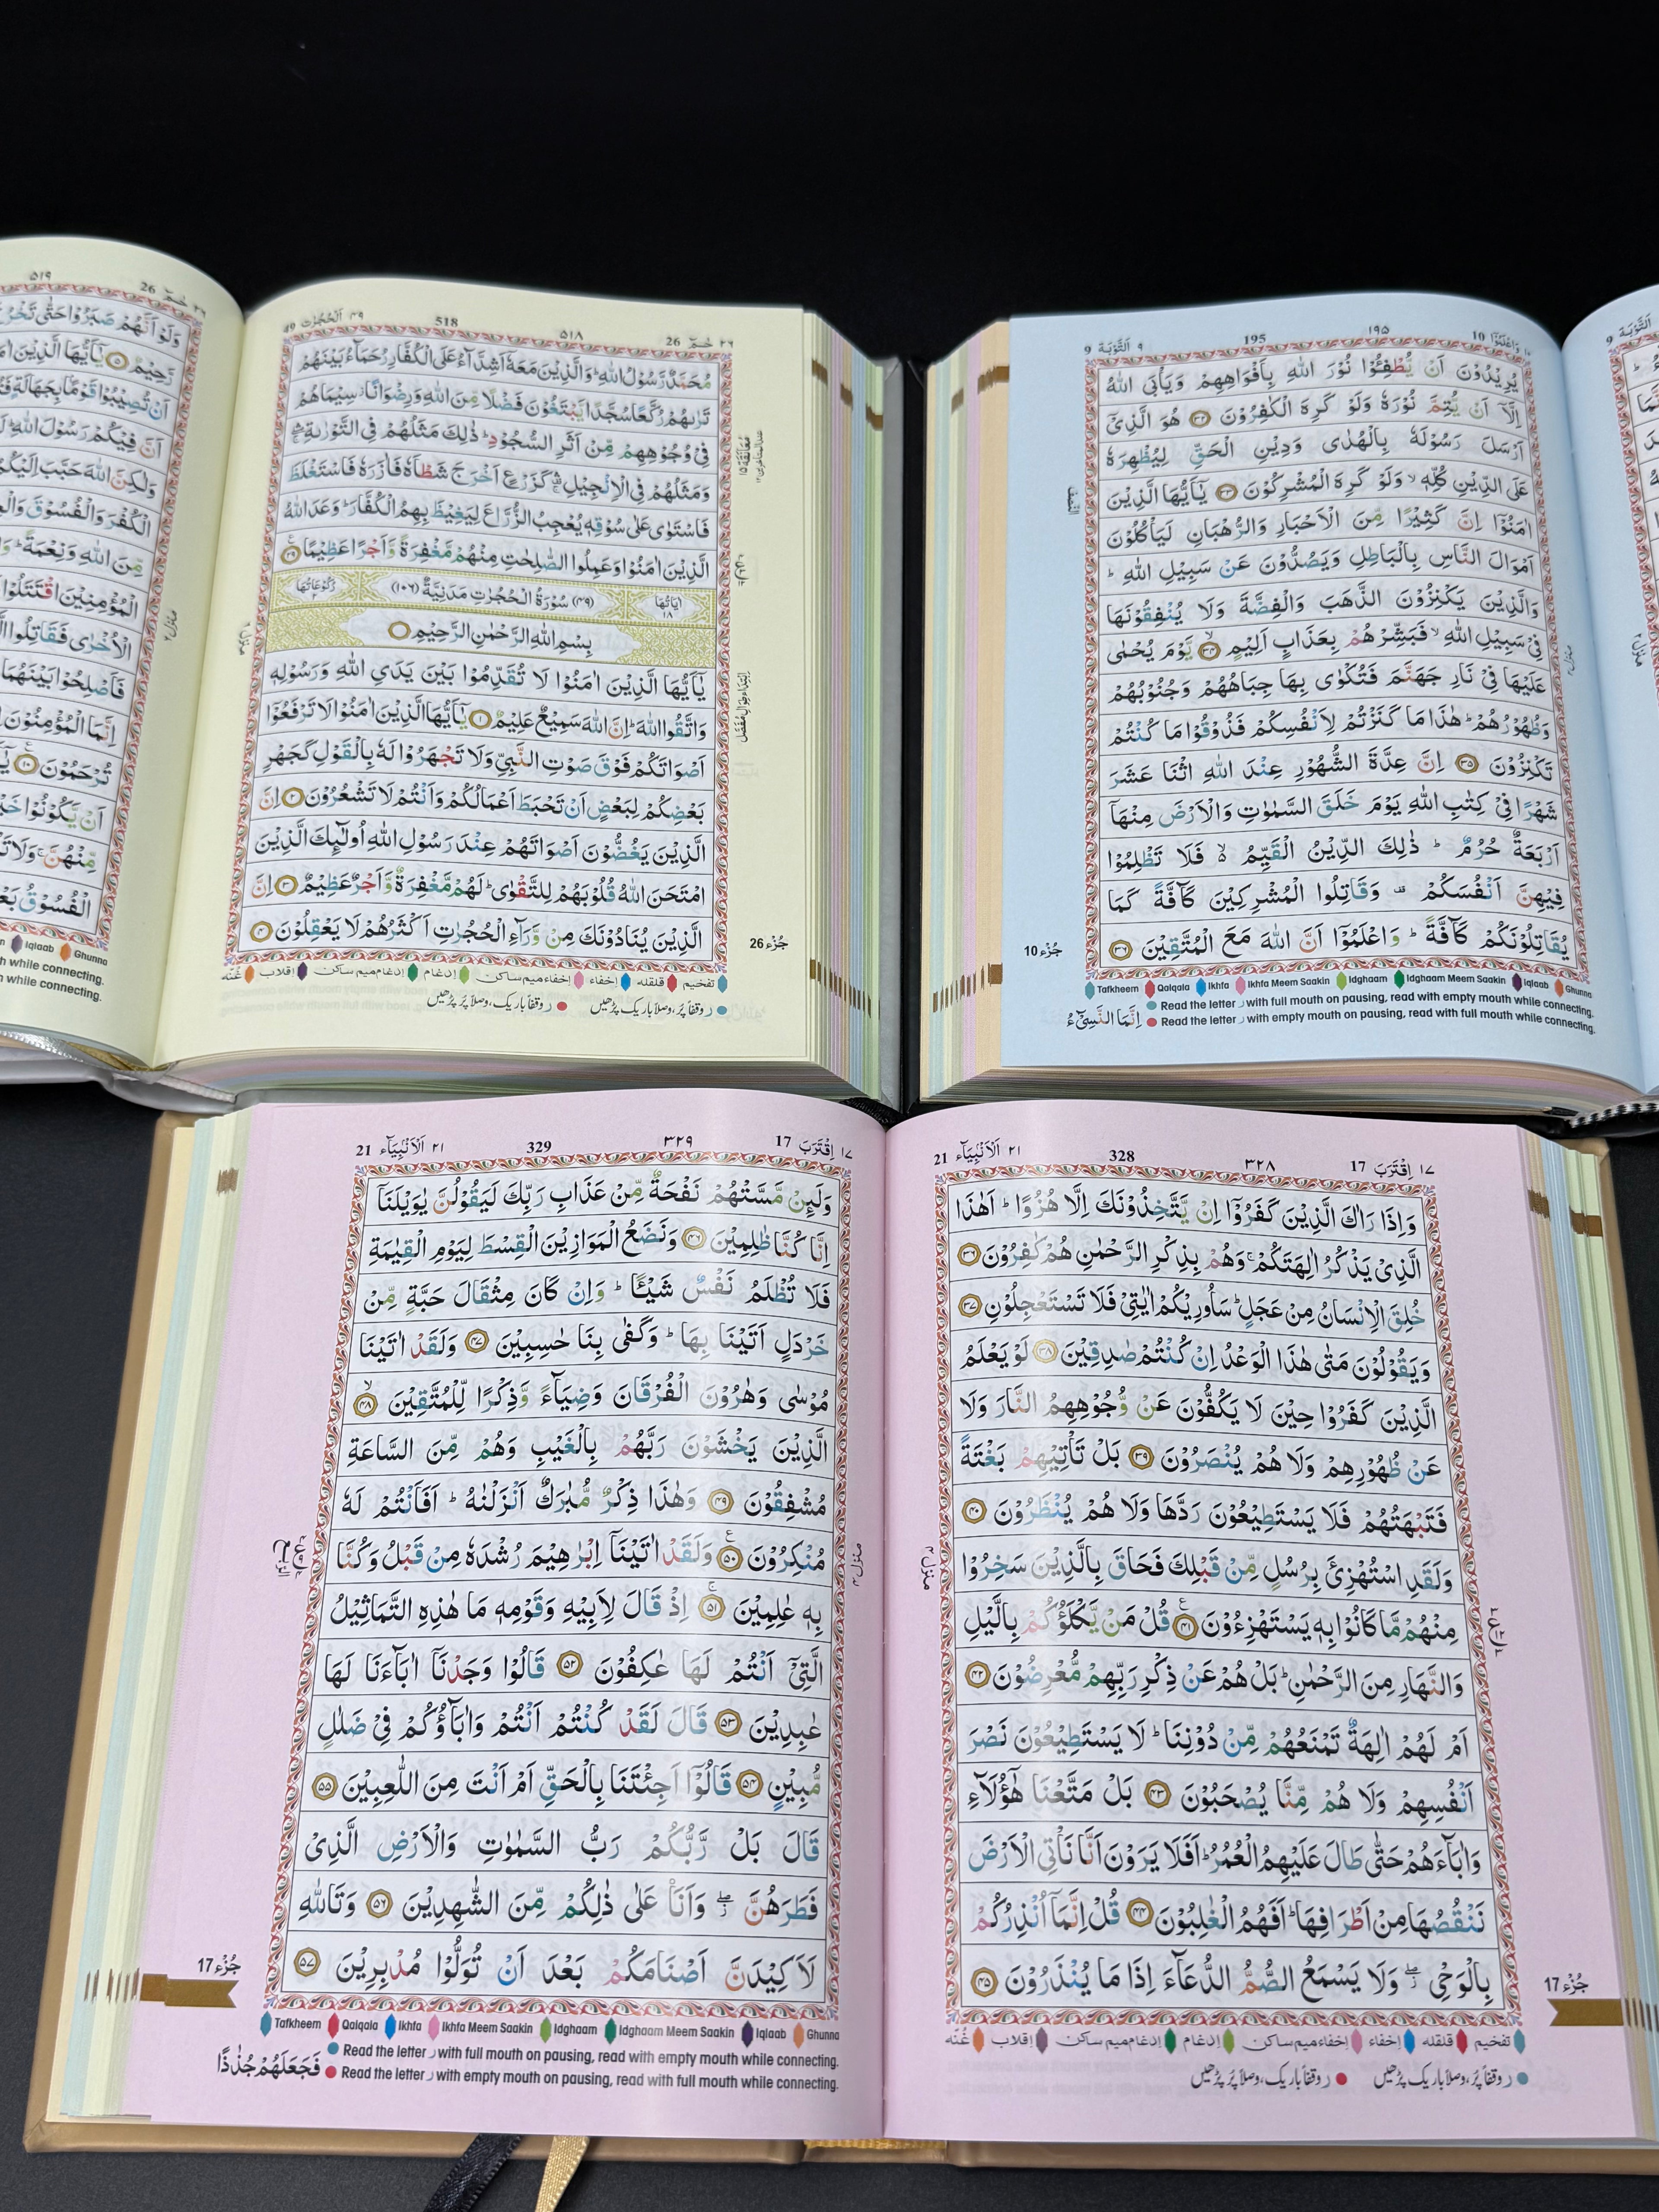 ٤٩ اَلْحُجُرٰت 49
518
٥١٨
26 حٰمٓ ٢٦
مُحَمَّدٌ رَّسُوْلُ اللّٰهِ ؕ وَالَّذِيْنَ مَعَهٗۤ اَشِدَّآءُ عَلَى الْكُفَّارِ رُحَمَآءُ بَيْنَهُمْ
تَرٰىهُمْ رُكَّعًا سُجَّدًا يَّبْتَغُوْنَ فَضْلًا مِّنَ اللّٰهِ وَرِضْوَانًا ؗ سِيْمَاهُمْ
فِيْ وُجُوْهِهِمْ مِّنْ اَثَرِ السُّجُوْدِ ؕ ذٰلِكَ مَثَلُهُمْ فِي التَّوْرٰىةِ ۛۖۚ
وَمَثَلُهُمْ فِي الْاِنْجِيْلِ ۛ۫ۚ كَزَرْعٍ اَخْرَجَ شَطْـَٔهٗ فَاٰزَرَهٗ فَاسْتَغْلَظَ
فَاسْتَوٰى عَلٰى سُوْقِهٖ يُعْجِبُ الزُّرَّاعَ لِيَغِيْظَ بِهِمُ الْكُفَّارَ ؕ وَعَدَ اللّٰهُ
الَّذِيْنَ اٰمَنُوْا وَعَمِلُوا الصّٰلِحٰتِ مِنْهُمْ مَّغْفِرَةً وَّاَجْرًا عَظِيْمًا ٢٩
اٰيَاتُهَا ١٨
(٤٩) سُوْرَةُ الْحُجُرٰتِ مَدَنِيَّةٌ (١٠٦)
رُكُوْعَاتُهَا
بِسْمِ اللّٰهِ الرَّحْمٰنِ الرَّحِيْمِ
يٰۤاَيُّهَا الَّذِيْنَ اٰمَنُوْا لَا تُقَدِّمُوْا بَيْنَ يَدَيِ اللّٰهِ وَرَسُوْلِهٖ
وَاتَّقُوا اللّٰهَ ؕ اِنَّ اللّٰهَ سَمِيْعٌ عَلِيْمٌ ١ يٰۤاَيُّهَا الَّذِيْنَ اٰمَنُوْا لَا تَرْفَعُوْۤا
اَصْوَاتَكُمْ فَوْقَ صَوْتِ النَّبِيِّ وَلَا تَجْهَرُوْا لَهٗ بِالْقَوْلِ كَجَهْرِ
بَعْضِكُمْ لِبَعْضٍ اَنْ تَحْبَطَ اَعْمَالُكُمْ وَاَنْتُمْ لَا تَشْعُرُوْنَ ٢ اِنَّ
الَّذِيْنَ يَغُضُّوْنَ اَصْوَاتَهُمْ عِنْدَ رَسُوْلِ اللّٰهِ اُولٰٓئِكَ الَّذِيْنَ
امْتَحَنَ اللّٰهُ قُلُوْبَهُمْ لِلتَّقْوٰى ؕ لَهُمْ مَّغْفِرَةٌ وَّاَجْرٌ عَظِيْمٌ ٣ اِنَّ
الَّذِيْنَ يُنَادُوْنَكَ مِنْ وَّرَآءِ الْحُجُرٰتِ اَكْثَرُهُمْ لَا يَعْقِلُوْنَ ٤
جُزْء 26
تفخيم قلقله إخفاء إخفاءميم ساكن إدغام إدغام ميم ساكن إقلاب غُنّه
ر وقفاً پُر، وصلاً باریک پڑھیں ر وقفاً باریک، وصلاً پُر پڑھیں
٥١٩
26 حٰمٓ ٢٦
وَلَوْ اَنَّهُمْ صَبَرُوْا حَتّٰى تَخْرُجَ
رَّحِيْمٌ ٥ يٰۤاَيُّهَا الَّذِيْنَ
اَنْ تُصِيْبُوْا قَوْمًۢا بِجَهَالَةٍ
اَنَّ فِيْكُمْ رَسُوْلَ اللّٰهِ
وَلٰكِنَّ اللّٰهَ حَبَّبَ اِلَيْكُمُ
الْكُفْرَ وَالْفُسُوْقَ
مِّنَ اللّٰهِ وَنِعْمَةً
الْمُؤْمِنِيْنَ اقْتَتَلُوْا
الْاُخْرٰى فَقَاتِلُوا
فَاَصْلِحُوْا بَيْنَهُمَا
اِنَّمَا الْمُؤْمِنُوْنَ
تُرْحَمُوْنَ ١٠
اَنْ يَّكُوْنُوْا
مِّنْهُنَّ ۚ وَلَا
الْفُسُوْقُ
Iqlaab Ghunna
while connecting.
while connecting.
٩ اَلتَّوْبَة 9
195
١٩٥
10 وَاعْلَمُوْۤا ١٠
يُرِيْدُوْنَ اَنْ يُّطْفِـُٔوْا نُوْرَ اللّٰهِ بِاَفْوَاهِهِمْ وَيَاْبَى اللّٰهُ
اِلَّاۤ اَنْ يُّتِمَّ نُوْرَهٗ وَلَوْ كَرِهَ الْكٰفِرُوْنَ ٣٢ هُوَ الَّذِيْۤ
اَرْسَلَ رَسُوْلَهٗ بِالْهُدٰى وَدِيْنِ الْحَقِّ لِيُظْهِرَهٗ
عَلَى الدِّيْنِ كُلِّهٖ ۙ وَلَوْ كَرِهَ الْمُشْرِكُوْنَ ٣٣ يٰۤاَيُّهَا الَّذِيْنَ
اٰمَنُوْۤا اِنَّ كَثِيْرًا مِّنَ الْاَحْبَارِ وَالرُّهْبَانِ لَيَاْكُلُوْنَ
اَمْوَالَ النَّاسِ بِالْبَاطِلِ وَيَصُدُّوْنَ عَنْ سَبِيْلِ اللّٰهِ ؕ
وَالَّذِيْنَ يَكْنِزُوْنَ الذَّهَبَ وَالْفِضَّةَ وَلَا يُنْفِقُوْنَهَا
فِيْ سَبِيْلِ اللّٰهِ ۙ فَبَشِّرْهُمْ بِعَذَابٍ اَلِيْمٍ ٣٤ يَّوْمَ يُحْمٰى
عَلَيْهَا فِيْ نَارِ جَهَنَّمَ فَتُكْوٰى بِهَا جِبَاهُهُمْ وَجُنُوْبُهُمْ
وَظُهُوْرُهُمْ ؕ هٰذَا مَا كَنَزْتُمْ لِاَنْفُسِكُمْ فَذُوْقُوْا مَا كُنْتُمْ
تَكْنِزُوْنَ ٣٥ اِنَّ عِدَّةَ الشُّهُوْرِ عِنْدَ اللّٰهِ اثْنَا عَشَرَ
شَهْرًا فِيْ كِتٰبِ اللّٰهِ يَوْمَ خَلَقَ السَّمٰوٰتِ وَالْاَرْضَ مِنْهَاۤ
اَرْبَعَةٌ حُرُمٌ ؕ ذٰلِكَ الدِّيْنُ الْقَيِّمُ ۙ۬ فَلَا تَظْلِمُوْا
فِيْهِنَّ اَنْفُسَكُمْ وَقَاتِلُوا الْمُشْرِكِيْنَ كَآفَّةً كَمَا
يُقَاتِلُوْنَكُمْ كَآفَّةً ؕ وَاعْلَمُوْۤا اَنَّ اللّٰهَ مَعَ الْمُتَّقِيْنَ ٣٦
جُزْء 10
Tafkheem Qalqala Ikhfa Ikhfa Meem Saakin Idghaam Idghaam Meem Saakin Iqlaab Ghunna
Read the letter ر with full mouth on pausing, read with empty mouth while connecting.
Read the letter ر with empty mouth on pausing, read with full mouth while connecting.
اِنَّمَا النَّسِيْٓءُ
٢١ اَلْاَنْۢبِيَآء 21
328
٣٢٨
17 اِقْتَرَبَ ١٧
وَاِذَا رَاٰكَ الَّذِيْنَ كَفَرُوْۤا اِنْ يَّتَّخِذُوْنَكَ اِلَّا هُزُوًا ؕ اَهٰذَا
الَّذِيْ يَذْكُرُ اٰلِهَتَكُمْ ۚ وَهُمْ بِذِكْرِ الرَّحْمٰنِ هُمْ كٰفِرُوْنَ ٣٦
خُلِقَ الْاِنْسَانُ مِنْ عَجَلٍ ؕ سَاُورِيْكُمْ اٰيٰتِيْ فَلَا تَسْتَعْجِلُوْنِ ٣٧
وَيَقُوْلُوْنَ مَتٰى هٰذَا الْوَعْدُ اِنْ كُنْتُمْ صٰدِقِيْنَ ٣٨ لَوْ يَعْلَمُ
الَّذِيْنَ كَفَرُوْا حِيْنَ لَا يَكُفُّوْنَ عَنْ وُّجُوْهِهِمُ النَّارَ وَلَا
عَنْ ظُهُوْرِهِمْ وَلَا هُمْ يُنْصَرُوْنَ ٣٩ بَلْ تَاْتِيْهِمْ بَغْتَةً
فَتَبْهَتُهُمْ فَلَا يَسْتَطِيْعُوْنَ رَدَّهَا وَلَا هُمْ يُنْظَرُوْنَ ٤٠
وَلَقَدِ اسْتُهْزِئَ بِرُسُلٍ مِّنْ قَبْلِكَ فَحَاقَ بِالَّذِيْنَ سَخِرُوْا
مِنْهُمْ مَّا كَانُوْا بِهٖ يَسْتَهْزِءُوْنَ ٤١ قُلْ مَنْ يَّكْلَؤُكُمْ بِالَّيْلِ
وَالنَّهَارِ مِنَ الرَّحْمٰنِ ؕ بَلْ هُمْ عَنْ ذِكْرِ رَبِّهِمْ مُّعْرِضُوْنَ ٤٢
اَمْ لَهُمْ اٰلِهَةٌ تَمْنَعُهُمْ مِّنْ دُوْنِنَا ؕ لَا يَسْتَطِيْعُوْنَ نَصْرَ
اَنْفُسِهِمْ وَلَا هُمْ مِّنَّا يُصْحَبُوْنَ ٤٣ بَلْ مَتَّعْنَا هٰۤؤُلَآءِ
وَاٰبَآءَهُمْ حَتّٰى طَالَ عَلَيْهِمُ الْعُمُرُ ؕ اَفَلَا يَرَوْنَ اَنَّا نَاْتِي الْاَرْضَ
نَنْقُصُهَا مِنْ اَطْرَافِهَا ؕ اَفَهُمُ الْغٰلِبُوْنَ ٤٤ قُلْ اِنَّمَاۤ اُنْذِرُكُمْ
بِالْوَحْيِ ۖ وَلَا يَسْمَعُ الصُّمُّ الدُّعَآءَ اِذَا مَا يُنْذَرُوْنَ ٤٥
جُزْء 17
تفخيم قلقله إخفاء إخفاءميم ساكن إدغام إدغام ميم ساكن إقلاب غُنّه
ر وقفاً پُر، وصلاً باریک پڑھیں ر وقفاً باریک، وصلاً پُر پڑھیں
٢١ اَلْاَنْۢبِيَآء 21
329
٣٢٩
17 اِقْتَرَبَ ١٧
وَلَئِنْ مَّسَّتْهُمْ نَفْحَةٌ مِّنْ عَذَابِ رَبِّكَ لَيَقُوْلُنَّ يٰوَيْلَنَاۤ
اِنَّا كُنَّا ظٰلِمِيْنَ ٤٦ وَنَضَعُ الْمَوَازِيْنَ الْقِسْطَ لِيَوْمِ الْقِيٰمَةِ
فَلَا تُظْلَمُ نَفْسٌ شَيْـًٔا ؕ وَاِنْ كَانَ مِثْقَالَ حَبَّةٍ مِّنْ
خَرْدَلٍ اَتَيْنَا بِهَا ؕ وَكَفٰى بِنَا حٰسِبِيْنَ ٤٧ وَلَقَدْ اٰتَيْنَا
مُوْسٰى وَهٰرُوْنَ الْفُرْقَانَ وَضِيَآءً وَّذِكْرًا لِّلْمُتَّقِيْنَ ٤٨
الَّذِيْنَ يَخْشَوْنَ رَبَّهُمْ بِالْغَيْبِ وَهُمْ مِّنَ السَّاعَةِ
مُشْفِقُوْنَ ٤٩ وَهٰذَا ذِكْرٌ مُّبٰرَكٌ اَنْزَلْنٰهُ ؕ اَفَاَنْتُمْ لَهٗ
مُنْكِرُوْنَ ٥٠ وَلَقَدْ اٰتَيْنَاۤ اِبْرٰهِيْمَ رُشْدَهٗ مِنْ قَبْلُ وَكُنَّا
بِهٖ عٰلِمِيْنَ ٥١ اِذْ قَالَ لِاَبِيْهِ وَقَوْمِهٖ مَا هٰذِهِ التَّمَاثِيْلُ
الَّتِيْۤ اَنْتُمْ لَهَا عٰكِفُوْنَ ٥٢ قَالُوْا وَجَدْنَاۤ اٰبَآءَنَا لَهَا
عٰبِدِيْنَ ٥٣ قَالَ لَقَدْ كُنْتُمْ اَنْتُمْ وَاٰبَآؤُكُمْ فِيْ ضَلٰلٍ
مُّبِيْنٍ ٥٤ قَالُوْۤا اَجِئْتَنَا بِالْحَقِّ اَمْ اَنْتَ مِنَ اللّٰعِبِيْنَ ٥٥
قَالَ بَلْ رَّبُّكُمْ رَبُّ السَّمٰوٰتِ وَالْاَرْضِ الَّذِيْ
فَطَرَهُنَّ ۖ وَاَنَا عَلٰى ذٰلِكُمْ مِّنَ الشّٰهِدِيْنَ ٥٦ وَتَاللّٰهِ
لَاَكِيْدَنَّ اَصْنَامَكُمْ بَعْدَ اَنْ تُوَلُّوْا مُدْبِرِيْنَ ٥٧
جُزْء 17
Tafkheem Qalqala Ikhfa Ikhfa Meem Saakin Idghaam Idghaam Meem Saakin Iqlaab Ghunna
Read the letter ر with full mouth on pausing, read with empty mouth while connecting.
Read the letter ر with empty mouth on pausing, read with full mouth while connecting.
فَجَعَلَهُمْ جُذٰذًا